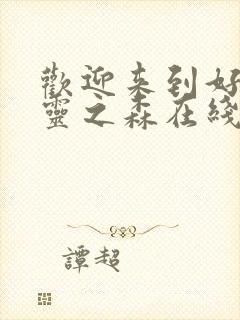 歡迎来到好
靈之森在綫
譚超